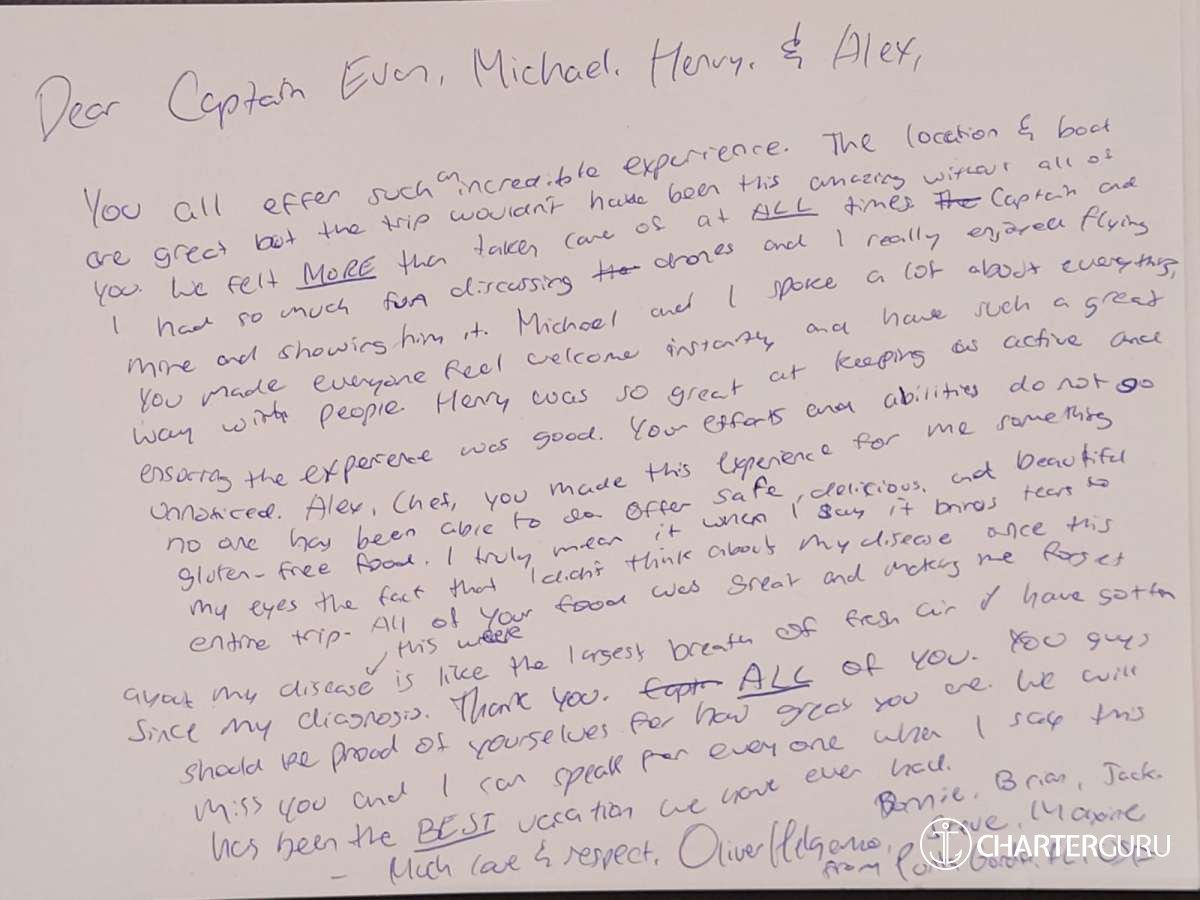 Dear Captain Evan, Michael, Henry, & Alex,
You all offer such an incredible experience. The location & boat
are great but the trip wouldn't have been this amazing without all of
you. We felt MORE than taken care of at ALL times. Captain and
I had so much fun discussing drones and I really enjoyed flying
mine and showing him it. Michael and I spoke a lot about everything,
You made everyone feel welcome instantly and have such a great
way with people. Henry was so great at keeping us active and
ensuring the experience was good. Your efforts and abilities do not go
unnoticed. Alex, Chef, you made this experience for me something
no one has been able to do offer safe, delicious, and beautiful
gluten-free food. I truly mean it when I say it brings tears to
my eyes the fact that I didn't think about my disease once this
entire trip. All of your food was great and making me forget
about my disease this week is like the largest breath of fresh air I have gotten
since my diagnosis. Thank you. ALL of you. You guys
should be proud of yourselves for how great you are. We will
miss you and I can speak for everyone when I say this
has been the BEST vacation we have ever had.
- Much love & respect, Oliver
Brian, Jack,
Maxine
from
CHARTERGURU